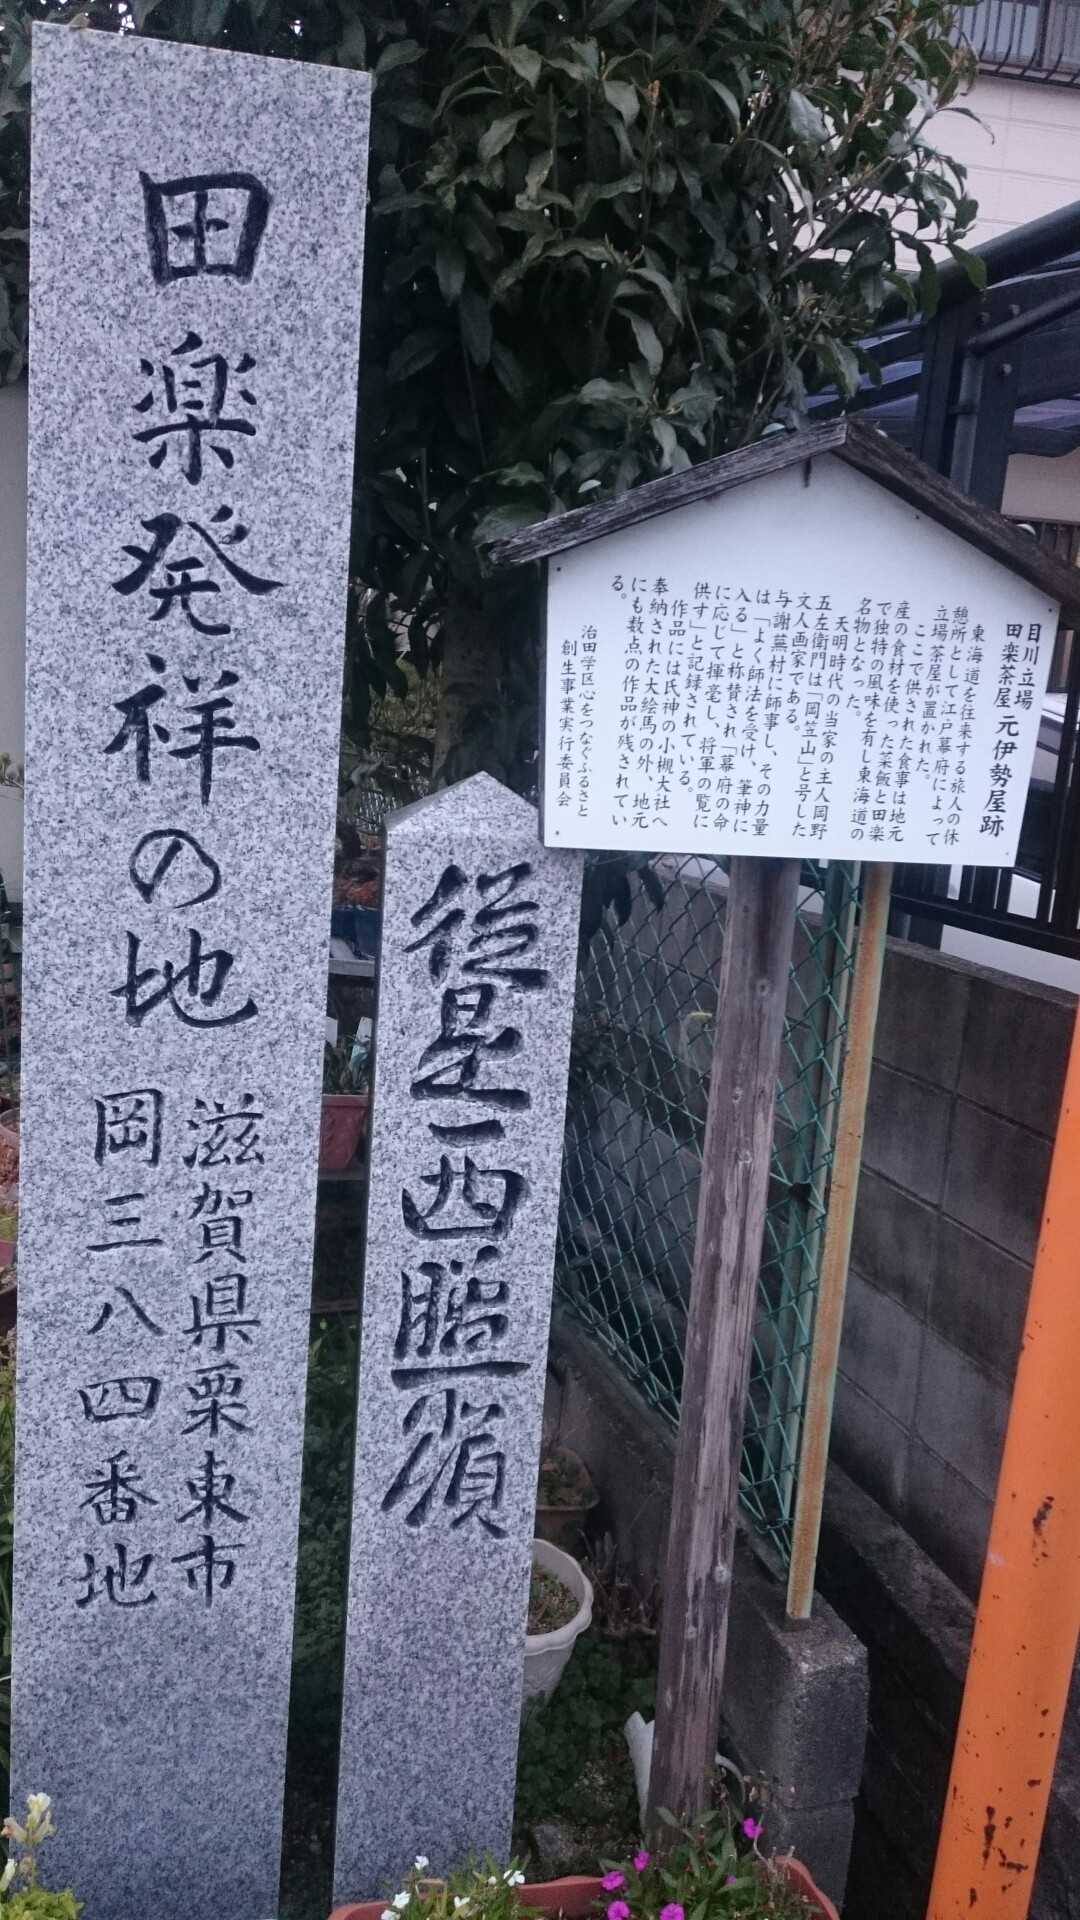 田楽発祥の地
滋賀県栗東市
岡三八四番地
從是西膳所領
目川立場
田楽茶屋 元伊勢屋跡
東海道を往来する旅人の休
憩所として江戸幕府によって
立場茶屋が置かれた。
ここで供された食事は地元
産の食材を使った菜飯と田楽
で独特の風味を有し東海道の
名物となった。
天明時代の当家の主人岡野
五左衛門は「岡笠山」と号した
文人画家である。
与謝蕪村に師事し、その力量
は「よく師法を受け、筆神に
入る」と称賛され「幕府の命
に応じて揮毫し、将軍の覧に
供す」と記録されている。
作品には氏神の小槻大社へ
奉納された大絵馬の外、地元
にも数点の作品が残されてい
る。
治田学区心をつなぐふるさと
創生事業実行委員会